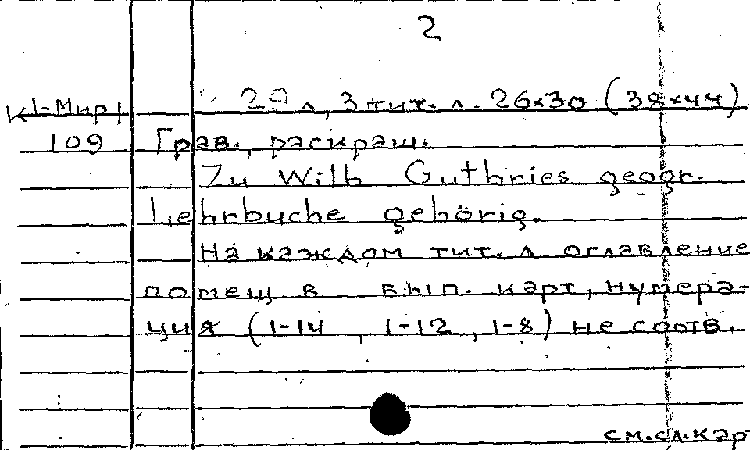 2
К1-Мир1 29 л, 3 тит. л. 26×30 (38×44)
109 Грав., раскраш.
Zu Wilh Guthries geogr.
Lehrbuche gehörig.
На каждом тит. л оглавление
помещ в вып. карт, нумера-
ция (1-14, 1-12, 1-8) не соотв.
см.сл.кар